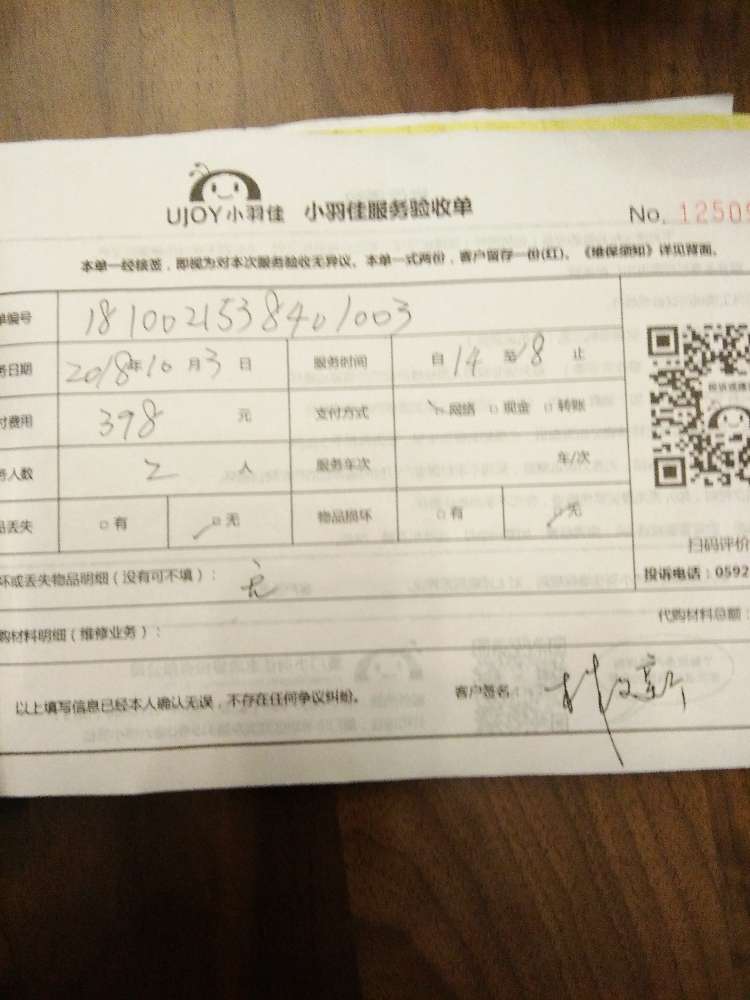 UJOY小羽佳 小羽佳服务验收单 No. 12505
本单一经接签，即视为对本次服务验收无异议。本单一式两份，客户留存一份(红)。《维保须知》详见背面。
单编号 1810021538401003
务日期 2018年10月3日 服务时间 自14至18止
付费用 398 元 支付方式 网络 现金 转账
务人数 2 人 服务车次 年/次
品丢失 有 无 物品损坏 有 无
扫码评价
坏或丢失物品明细（没有可不填）： 无
投诉电话：0592
购材料明细（维修业务）：
代购材料总额：
以上填写信息已经本人确认无误，不存在任何争议纠纷。 客户签名：